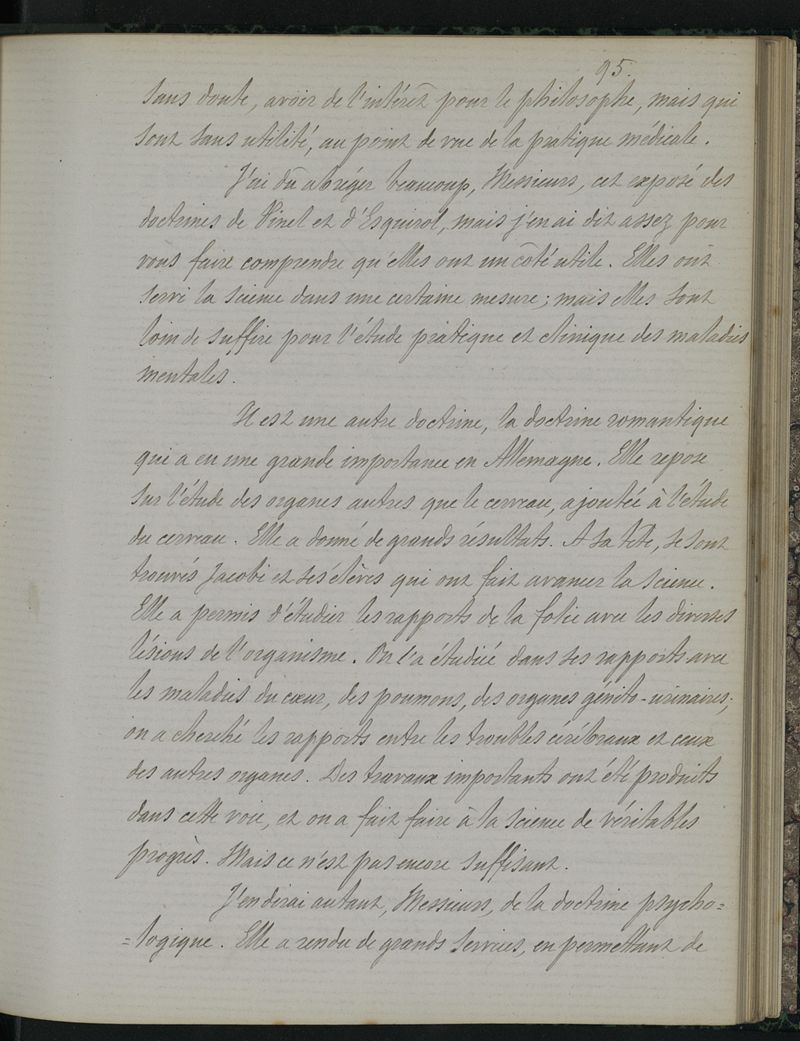 95.
sans doute, avoir de l'intérêt pour le philosophe, mais qui
sont sans utilité, au point de vue de la pratique médicale.
J'ai dû abréger beaucoup, Messieurs, cet exposé des
doctrines de Pinel et d'Esquirol, mais j'en ai dit assez pour
vous faire comprendre qu'elles ont un côté utile. Elles ont
servi la science dans une certaine mesure; mais elles sont
loin de suffire pour l'étude pratique et clinique des maladies
mentales.
Il est une autre doctrine, la doctrine romantique
qui a eu une grande importance en Allemagne. Elle repose
sur l'étude des organes autres que le cerveau, ajoutée à l'étude
du cerveau. Elle a donné de grands résultats. A sa tête, se sont
trouvés Jacobi et ses élèves qui ont fait avancer la science.
Elle a permis d'étudier les rapports de la folie avec les diverses
lésions de l'organisme. On l'a étudiée dans ses rapports avec
les maladies du cœur, des poumons, des organes génito-urinaires;
on a cherché les rapports entre les troubles cérébraux et ceux
des autres organes. Des travaux importants ont été produits
dans cette voie, et on a fait faire à la science de véritables
progrès. Mais ce n'est pas encore suffisant.
J'en dirai autant, Messieurs, de la doctrine psycho=
=logique. Elle a rendu de grands services, en permettant de